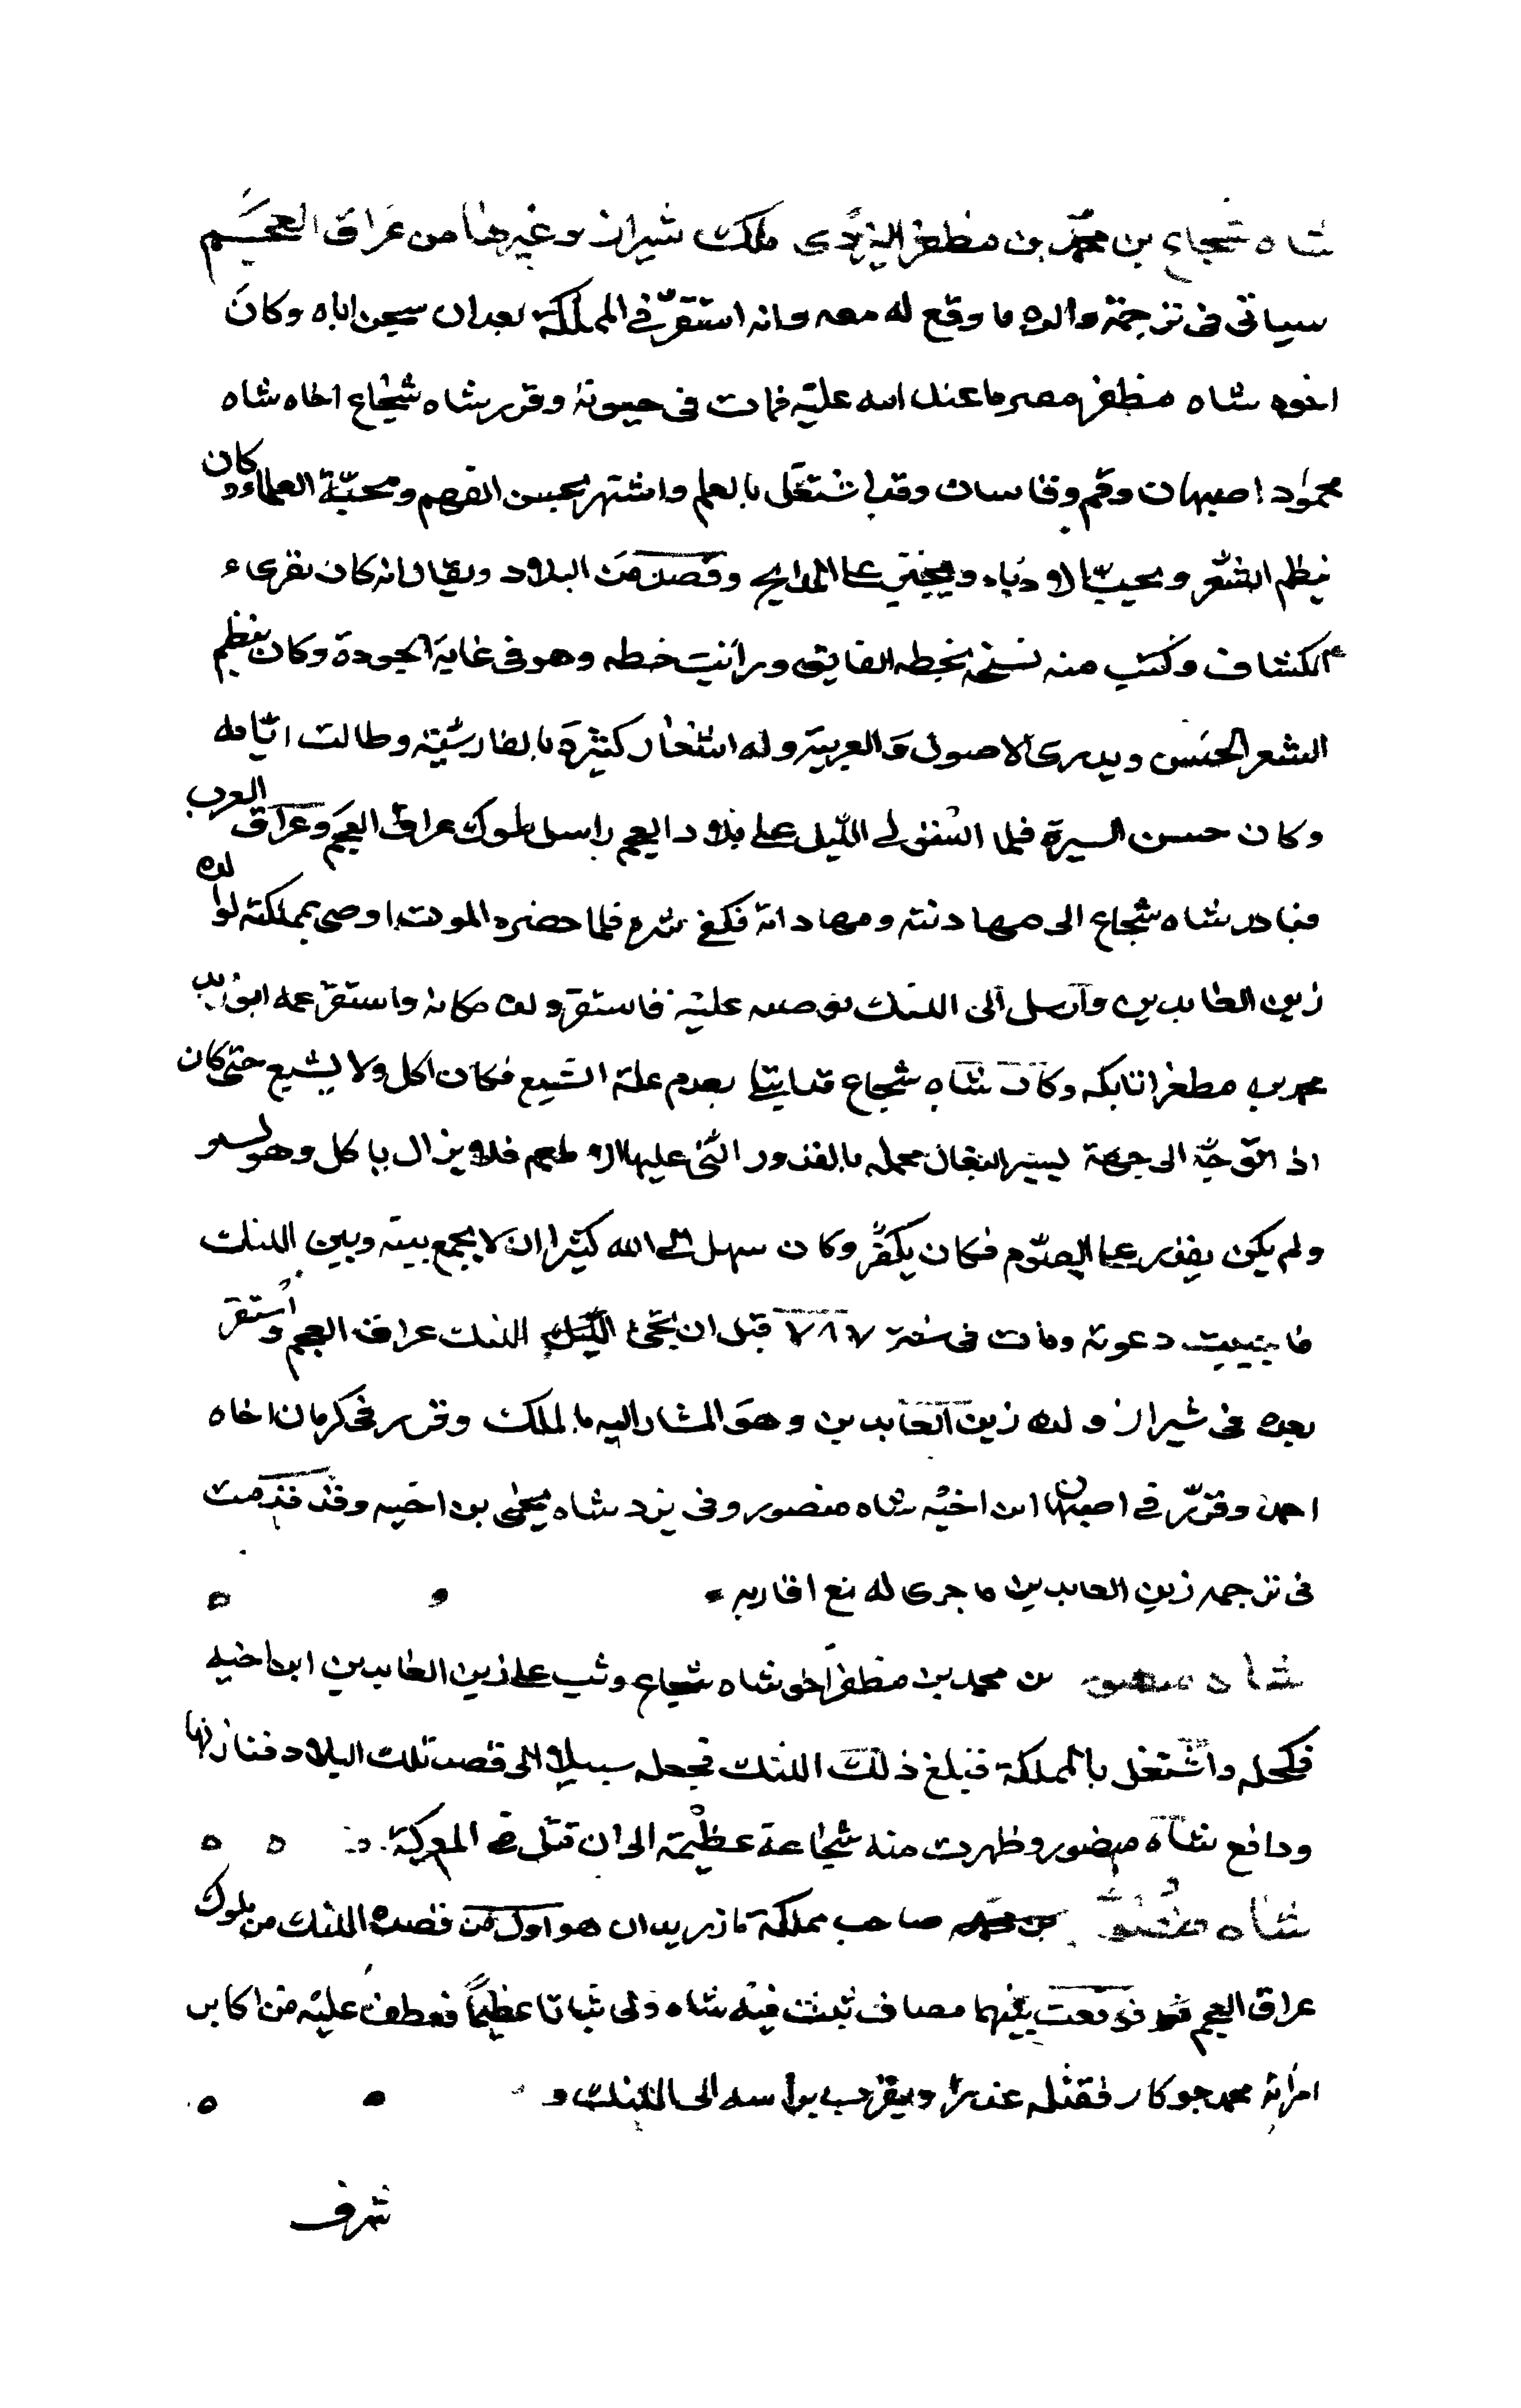 شاه شجاع بن محمد بن مظفر اليزدى ملك شيراز وغيرها من عراق العجم
سياتى فى ترجمة والده ما وقع له معه وانه استقر فى المملكة بعد ان سجن اباه وكان
اخوه شاه مظفر عليه فمات فى حيوته وقرر شاه شجاع اخاه شاه
محمود اصبهان وقم وقاسان وقد اشتغل بالعلم واشتهر بحسن الفهم ومحبة العلماء وكان
ينظم الشعر ويحب الادباء ويجيز على المدايح وقصد من البلاد ويقال انه كان يقرىء
الكشاف وكتب منه نسخة بخطه الفايق ورأيت خطه وهو فى غاية الجودة وكان ينظم
الشعر الحسن ويدرى الاصول والعربية وله اشعار كثيرة بالفارسية وطالت ايامه
وكان حسن السيرة فلما على بلاد العجم راسل ملوك عراق العجم وعراق العرب
فبادر شاه شجاع الى مهادنته ومهاداته فكفى شره فلما حضره الموت اوصى بمملكته لولده
زين العابدين وارسل الى اللنك يوصيه عليه فاستقر ولده مكانه واستقر عمه ابو يزيد
محمد بن مظفر اتابكه وكان شاه شجاع قد ابتلى بعدم علة الشبع فكان اكل ولا يشبع حتى كان
اذا توجه الى جهة يسير البغال محمله بالقدور التى عليها طعم فلا يزال ياكل وهو يسير
ولم يكن يقدر على الصوم فكان يكفر وكان سهل الى الله كثيرا ان لا يجمع بينه وبين اللنك
فاجيبت دعوته ومات فى سنة ٧٨٧ قبل ان يجئ اللنك عراق العجم واستقر
بعده فى شيراز ولده زين العابدين وهو المشار اليه بالملك وقرر فى كرمان اخاه
احمد وقرر فى اصبهان ابن اخيه شاه منصور وفى يزد شاه يحيى بن اخيه وقد قدمت
فى ترجمه زين العابدين ما جرى له مع اقاربه
شاه منصور بن محمد بن مظفر اخو شاه شجاع وثب على زين العابدين ابن اخيه
فكحله واشتغل بالمملكة فبلغ ذلك اللنك فجعله سبيلا الى قصد تلك البلاد فنازلها
ودافع شاه منصور وظهرت منه شجاعة عظيمة الى ان قتل فى المعركة
شاه صاحب مملكة مازندران هو اول من قصده اللنك من ملوك
عراق العجم فوقعت بينهما مصاف ثبت فيه شاه ولى ثباتا عظيما فعطف عليه من اكابر
امرائه محمد جوكار فقتله غدرا ويقرب براسه الى اللنك
شرف